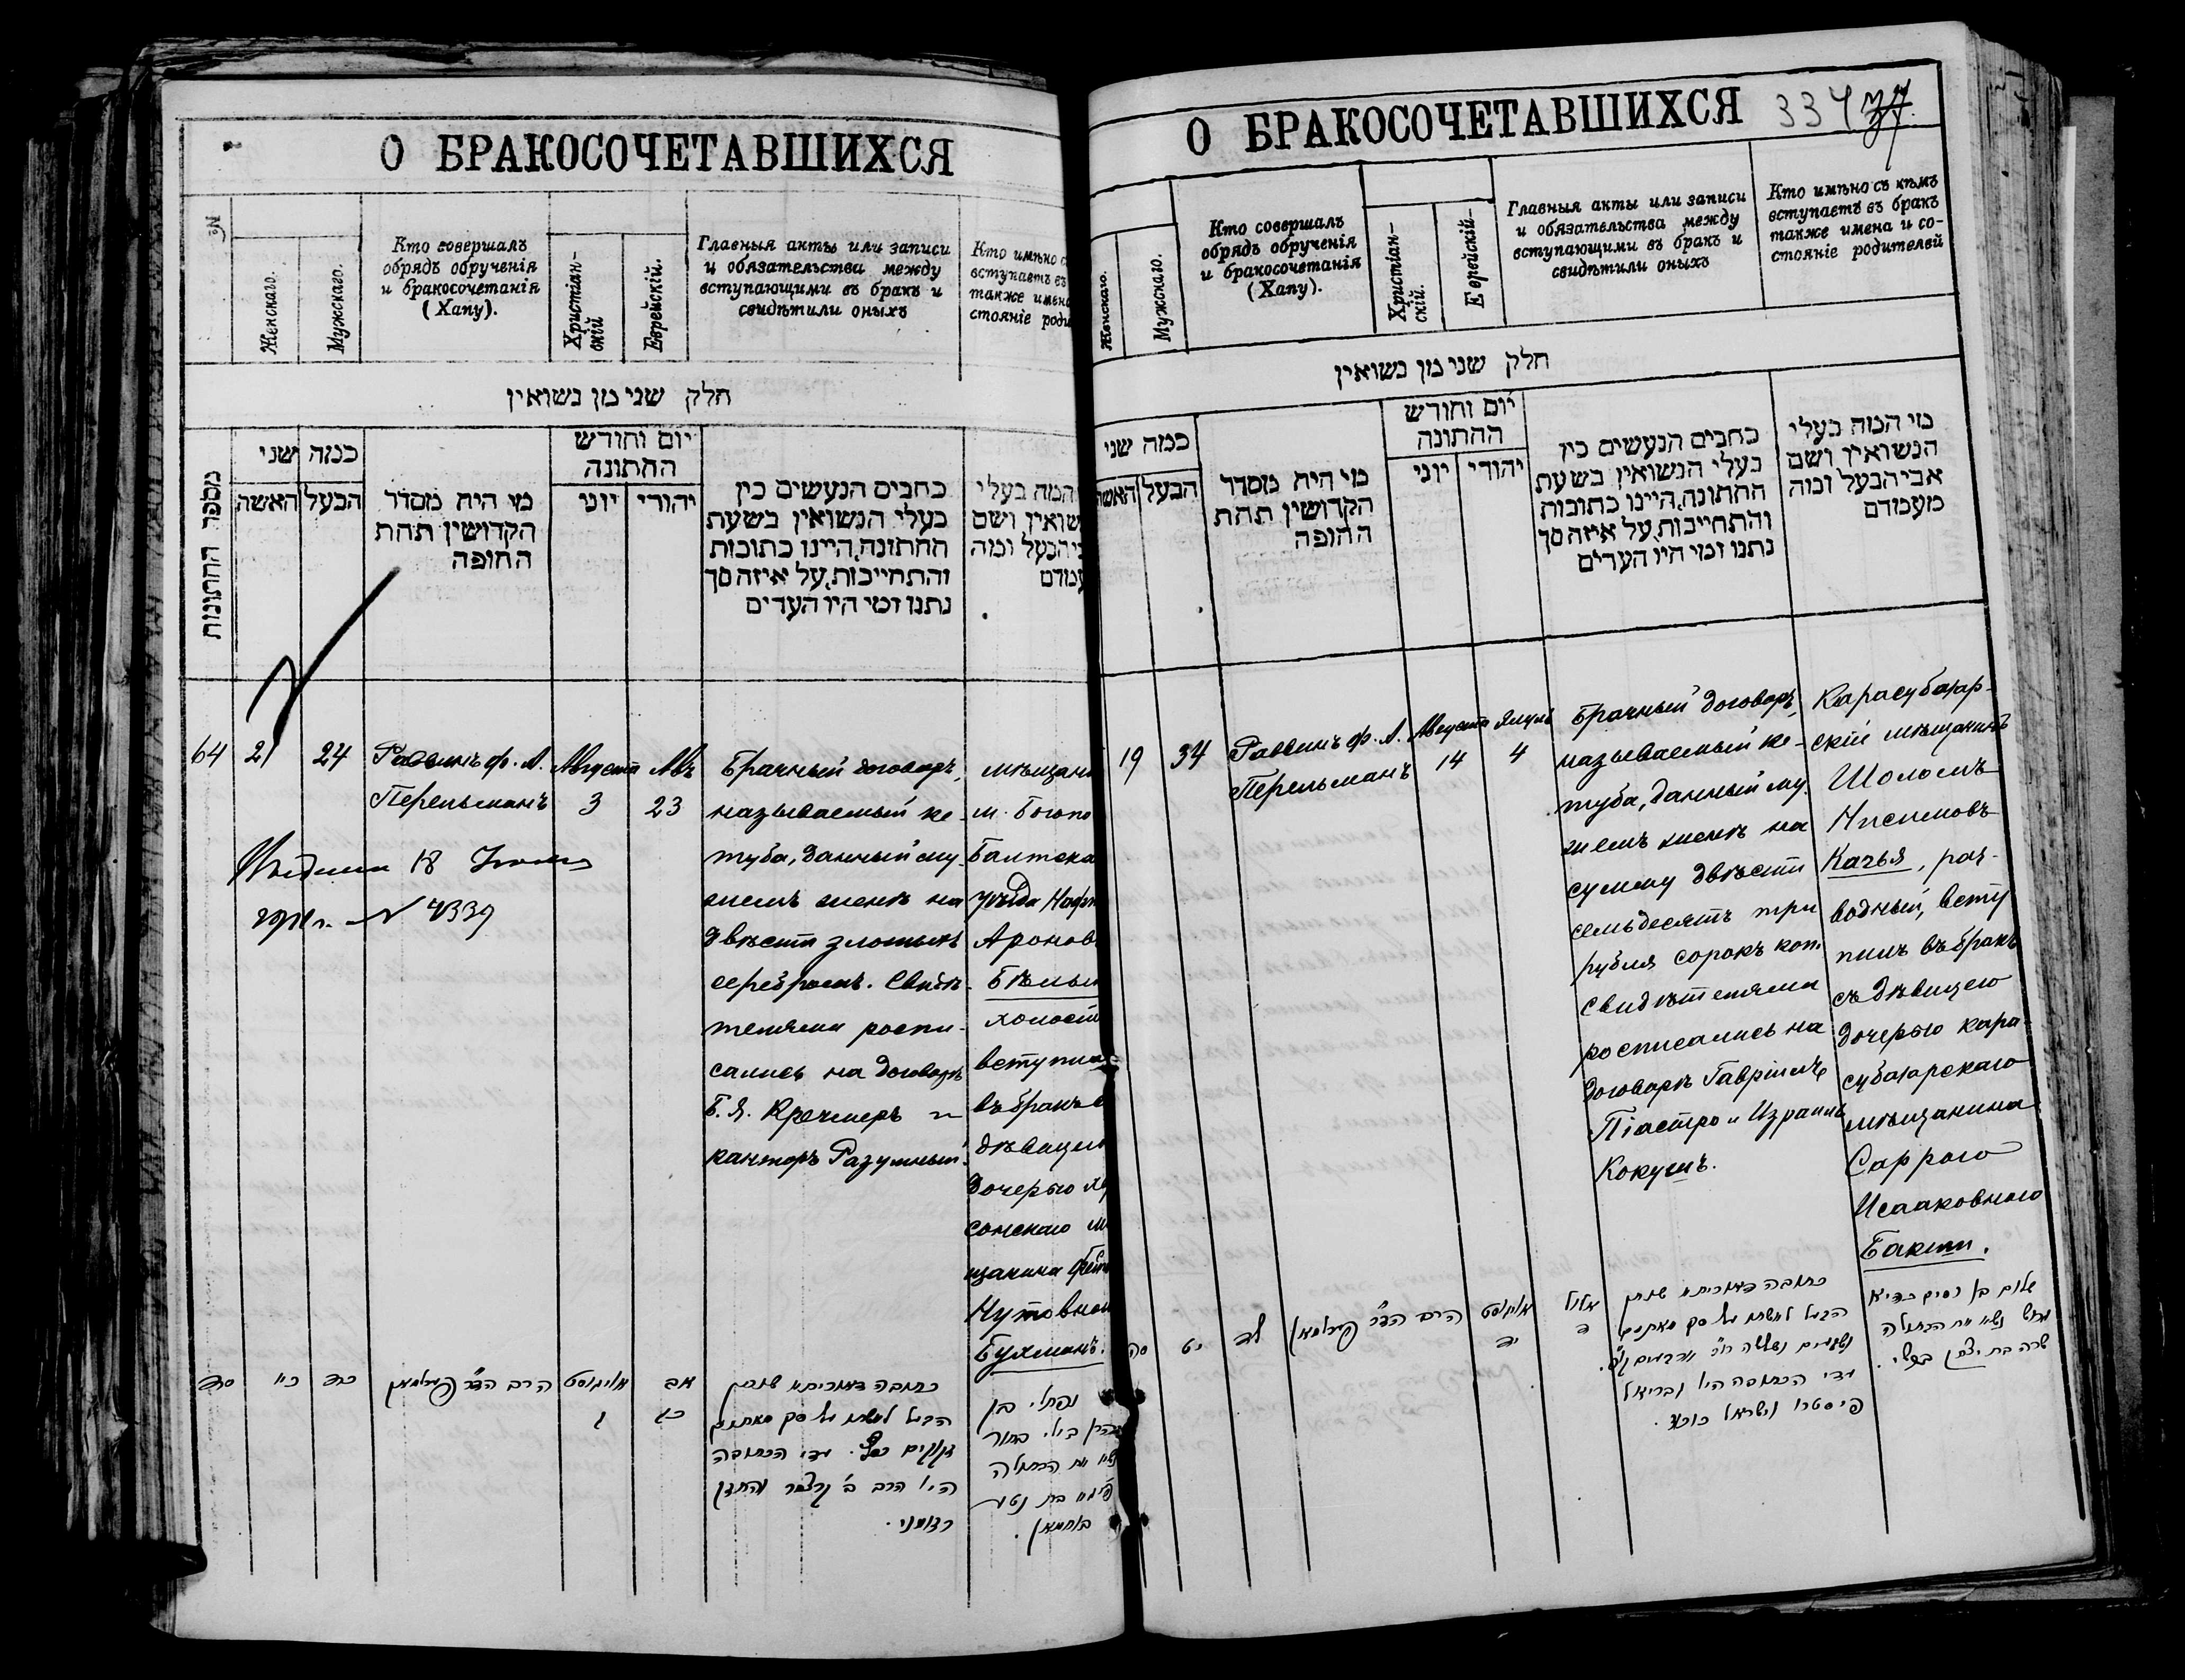 О БРАКОСОЧЕТАВШИХСЯ
№
Женскаго.
Мужскаго.
Кто совершалъ
обрядъ обрученія
и бракосочетанія
(Хапу).
Христіан-
скій
Еврейскій.
Главныя акты или записи
и обязательства между
вступающими въ бракъ и
свидѣтили оныхъ
Кто имѣно с
вступаетъ въ
также имена
стояніе роди
חלק שני מן נשואין
מספר החתונות
כמה שני
האשה
הבעל
מי היה מסדר
הקדושין תחת
החופה
יום וחודש
החתונה
יוני
יהודי
כתבים הנעשים בין
בעלי הנשואין בשעת
החתונה, היינו כתובות
והתחייבות, על איזה סך
נתנו ומי היו העדים
המה בעלי
שואין ושם
יהבעל ומה
עמדם
64
21
24
Раввинъ Ф. А.
Перельманъ
Августа
3
Авъ
23
Брачный договоръ,
называемый ке-
туба, данный му-
жемъ женѣ на
двѣсти злотыхъ
серебромъ. Свидѣ-
телями роспи-
сались на договорѣ
Б. Я. Кречмеръ и
канторъ Разумный.
мѣщани
м. Богопо
Балтска
уѣзда Нафт
Аронов
Бѣлы
холост
вступил
въ бракъ с
дѣвицею
дочерью хер
сонскаго м
щанина
Нутовно
Бухманъ.
18
N 4339
סד
כא
כד
הרב הד״ר פערלמאן
אויגוסט
ג
אב
כג
כתובה דאורייתא שנתן
הבעל לאשתו על סך מאתים
זקוקים כסף. עדי הכתובה
היו הרב ב׳ קרצמר והחזן
רזומני.
נפתלי בן
אהרן בילי בחור
נשא את הבתולה
בת נטע
בוחמאן.
О БРАКОСОЧЕТАВШИХСЯ
334
37
Женскаго.
Мужскаго.
Кто совершалъ
обрядъ обрученія
и бракосочетанія
(Хапу).
Христіан-
скій.
Еврейскій-
Главныя акты или записи
и обязательства между
вступающими въ бракъ и
свидѣтили оныхъ
Кто имѣно съ кѣмъ
вступаетъ въ бракъ
также имена и со-
стояніе родителей
חלק שני מן נשואין
כמה שני
האשה
הבעל
מי היה מסדר
הקדושין תחת
החופה
יום וחודש
החתונה
יוני
יהודי
כתבים הנעשים בין
בעלי הנשואין בשעת
החתונה, היינו כתובות
והתחייבות, על איזה סך
נתנו ומי היו העדים
מי המה בעלי
הנשואין ושם
אביהבעל ומה
מעמדם
19
34
Раввинъ Ф. А.
Перельманъ
Августа
14
Элулъ
4
Брачный договоръ,
называемый ке-
туба, данный му-
жемъ женѣ на
сумму двѣсти
семьдесятъ три
рубля сорокъ коп.
Свидѣтелями
росписались на
договорѣ Гавріилъ
Піастро и Израиль
Кокушъ.
Карасубазар-
скій мѣщанинъ
Шоломъ
Нисимовъ
Качья, раз-
водный, всту
пилъ въ бракъ
съ дѣвицею
дочерью кара
субазарскаго
мѣщанина
Саррою
Исааковною
Бакши.
סה
יט
לד
הרב הד״ר פערלמאן
אויגוסט
יד
אלול
ד
כתובה דאורייתא שנתן
הבעל לאשתו על סך מאתים
ושבעים ושלשה רו״כ וארבעים קא״פ.
עדי הכתובה היו גבריאל
פיסטרו וישראל כוכוש.
שלום בן נסים כדיא
גרוש נשא את הבתולה
שרה בת יצחק בקשי.